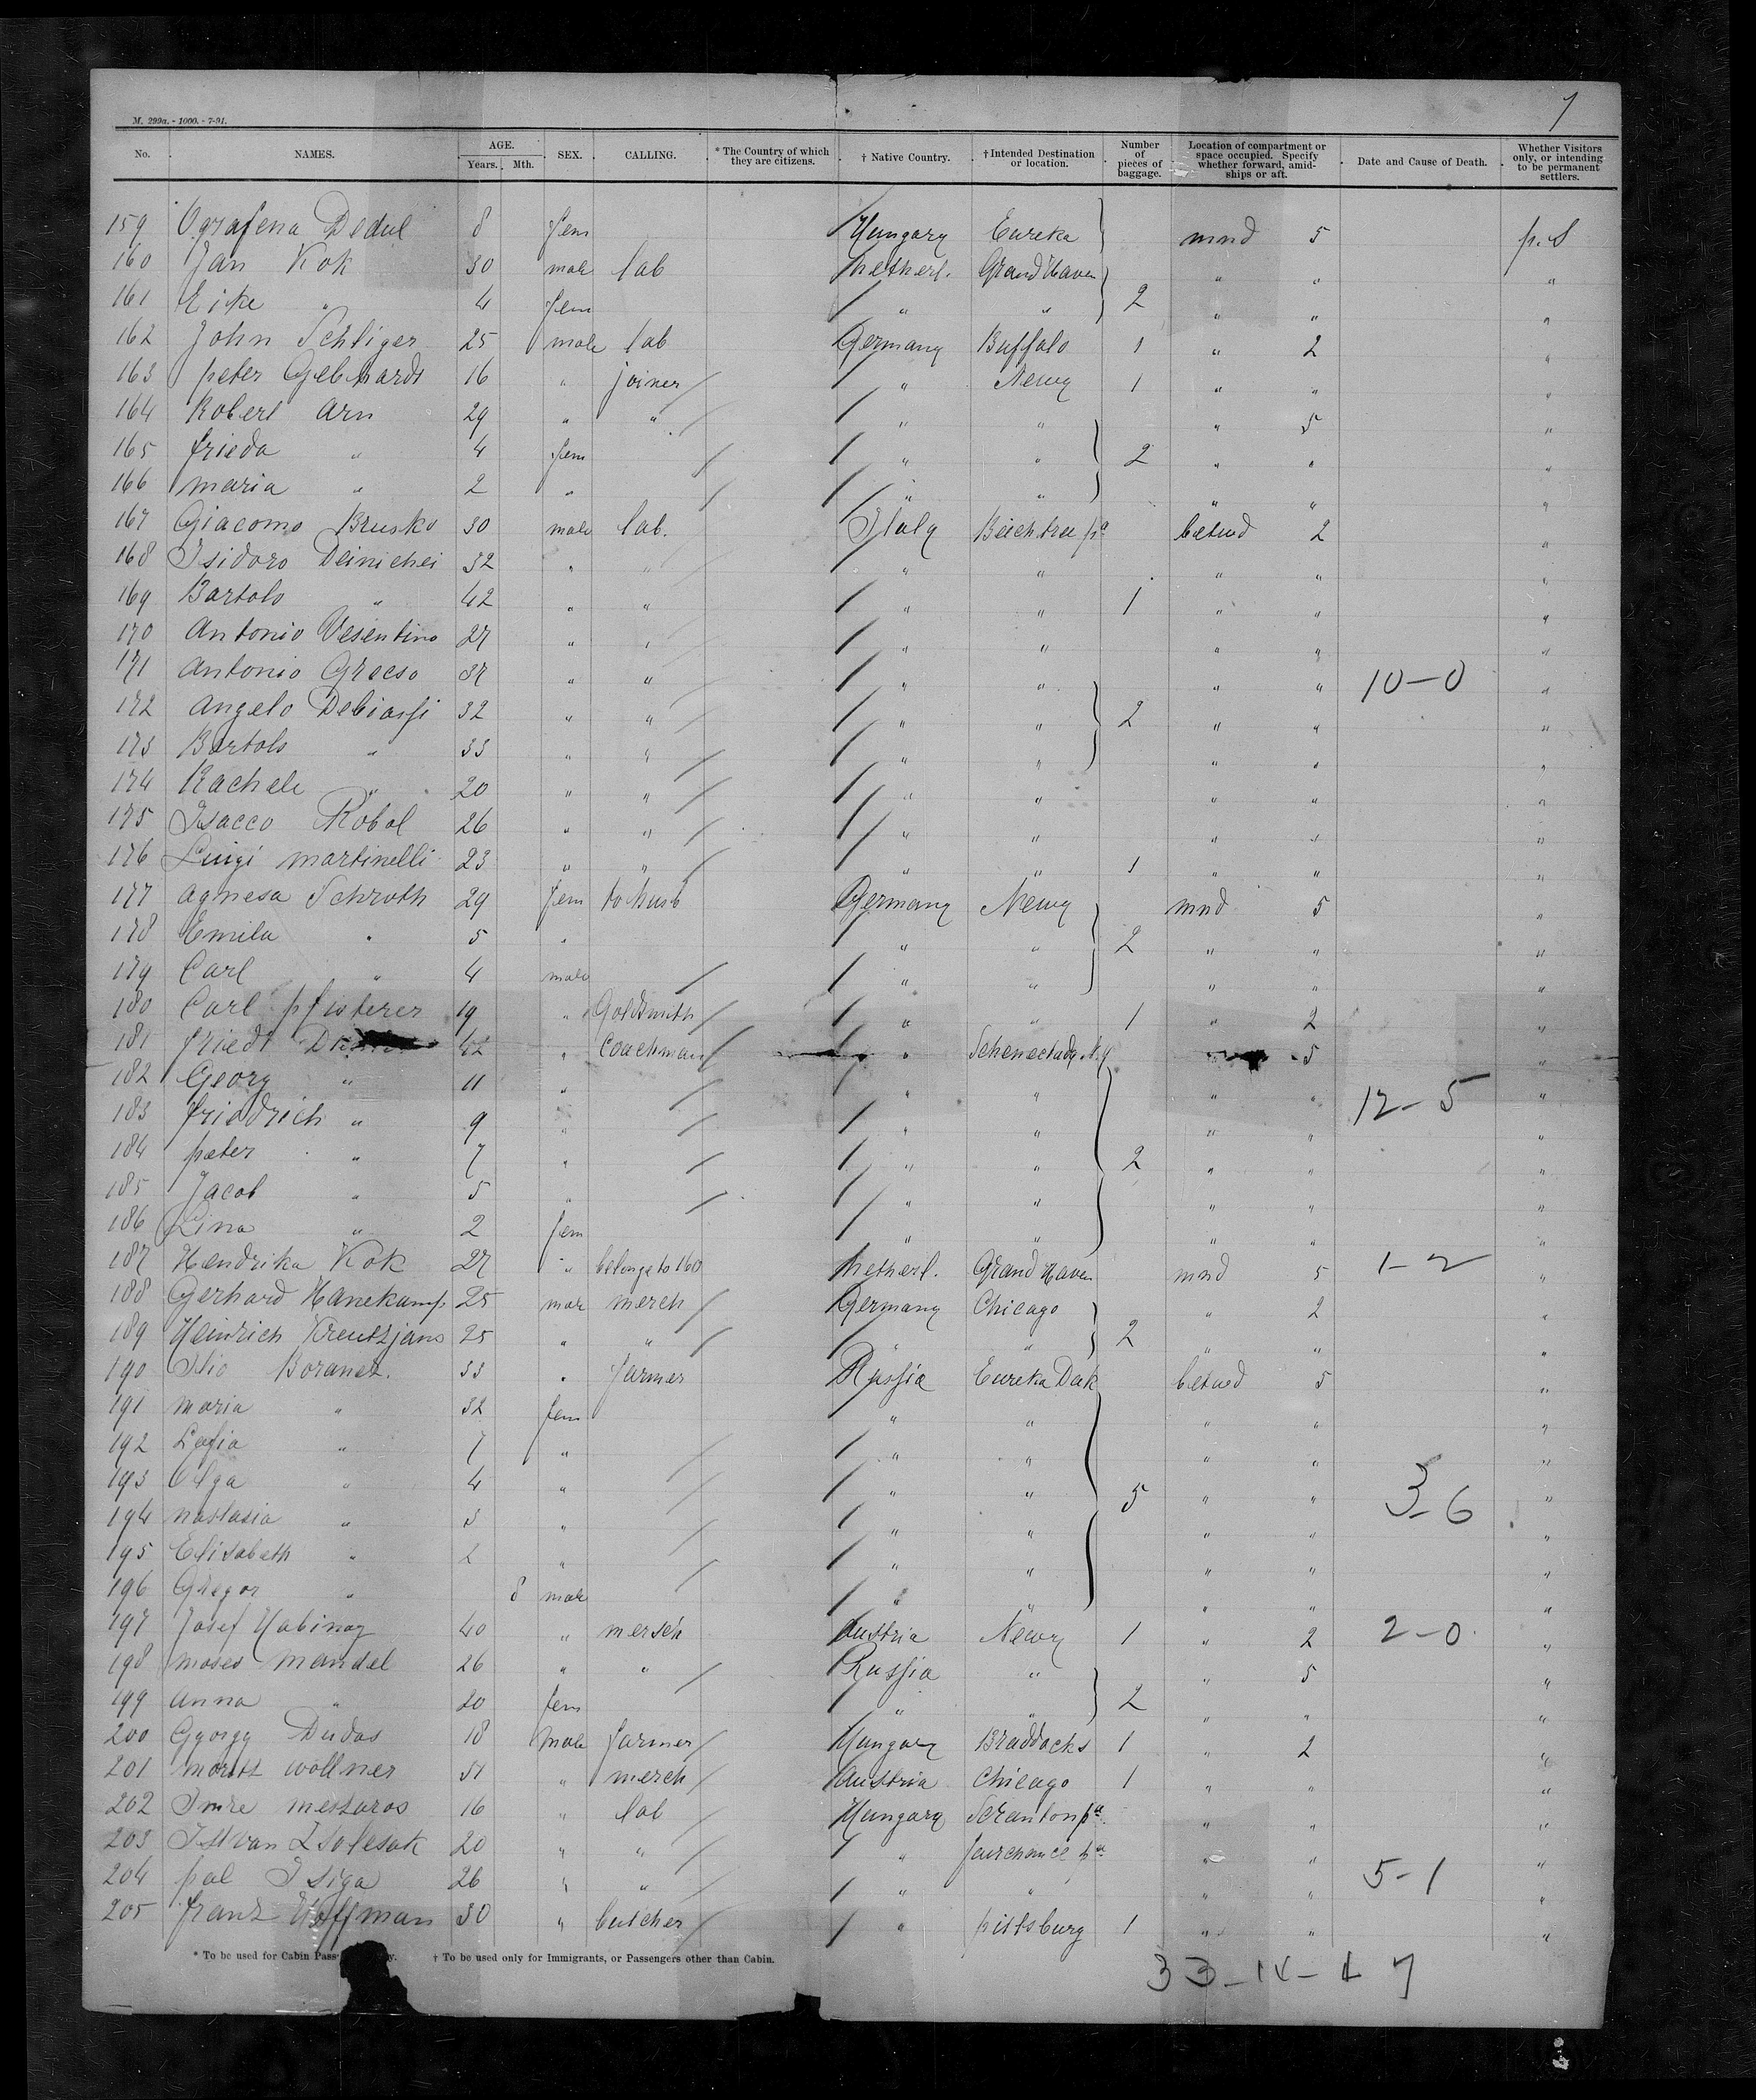 7
M. 299a. - 1000. - 7-91.
No. NAMES. AGE. Years. Mth. SEX. CALLING. * The Country of which they are citizens. † Native Country. † Intended Destination or location. Number of pieces of baggage. Location of compartment or space occupied. Specify whether forward, amidships or aft. Date and Cause of Death. Whether Visitors only, or intending to be permanent settlers.
159 Ografena Dedul 8 fem Hungary Eureka mnd 5 p.S
160 Jan Kok 30 male lab netherl. Grand Haven " " "
161 Eike " 4 fem " " 2 " " "
162 John Schliger 25 male lab Germany Buffalo 1 " 2 "
163 peter Gebhardt 16 " joiner " Newy 1 " " "
164 Robert Arn 29 " " " " " 5 "
165 frieda " 4 fem " " 2 " " "
166 maria " 2 " " " " " "
167 Giacomo Brusko 30 male lab. Italy Beichtree pa betwd 2 "
168 Isidoro Deinichei 32 " " " " " " "
169 Bartolo " 42 " " " " 1 " " "
170 Antonio Vesentino 27 " " " " " " "
171 Antonio Grecso 37 " " " " " " 10-0 "
172 Angelo Debiassi 32 " " " " 2 " " "
173 Bartolo " 33 " " " " " " "
174 Rachele " 20 " " " " " " "
175 Isacco Robol 26 " " " " " " "
176 Luigi martinelli 23 " " " " 1 " " "
177 agnesa Schroth 29 fem to husb Germany Newy mnd 5 "
178 Emila " 5 " " " 2 " " "
179 Carl " 4 male " " " " "
180 Carl pfisterer 19 " Goldsmith " " 1 " 2 "
181 friedr 42 " Coachman " Schenectady N.y 5 "
182 Georg " 11 " " " " " 12-5 "
183 friedrich " 9 " " " " " "
184 peter " 7 " " " 2 " " "
185 Jacob " 5 " " " " " "
186 Lina " 2 fem " " " " "
187 Hendrika Kok 27 " belongs to 160 netherl. Grand Haven mnd 5 1-2 "
188 Gerhard Hanekamp 25 male merch Germany Chicago " 2 "
189 Heinrich Kreutzjans 25 " " " " 2 " " "
190 Ilio Boranez. 33 " farmer Russia Eureka Dak betwd 5 "
191 maria " 32 fem " " " " "
192 " 7 " " " " " "
193 Olga " 4 " " " 5 " " 3-6 "
194 nastasia " 3 " " " " " "
195 Elisabeth " 2 " " " " " "
196 Gregor " 8 male " " " " "
197 Josef Habinay 40 " merch Austria Newy 1 " 2 2-0 "
198 moses mandel 26 " " Russia " " 5 "
199 anna " 20 fem " " 2 " " "
200 Gyorgy Dudas 18 male farmer Hungary Braddocks 1 " 2 "
201 moritz wollner 51 " merch Austria Chicago 1 " " "
202 Imre meszaros 16 " lab Hungary Scranton pa. " " "
203 Istvan Zsolesak 20 " " " fairchance pa " " "
204 pal Isiga 26 " " " " " " 5-1 "
205 franz Hoffman 30 " butcher " pittsburg 1 " " "
* To be used for Cabin Pass y. † To be used only for Immigrants, or Passengers other than Cabin.
33-14-47